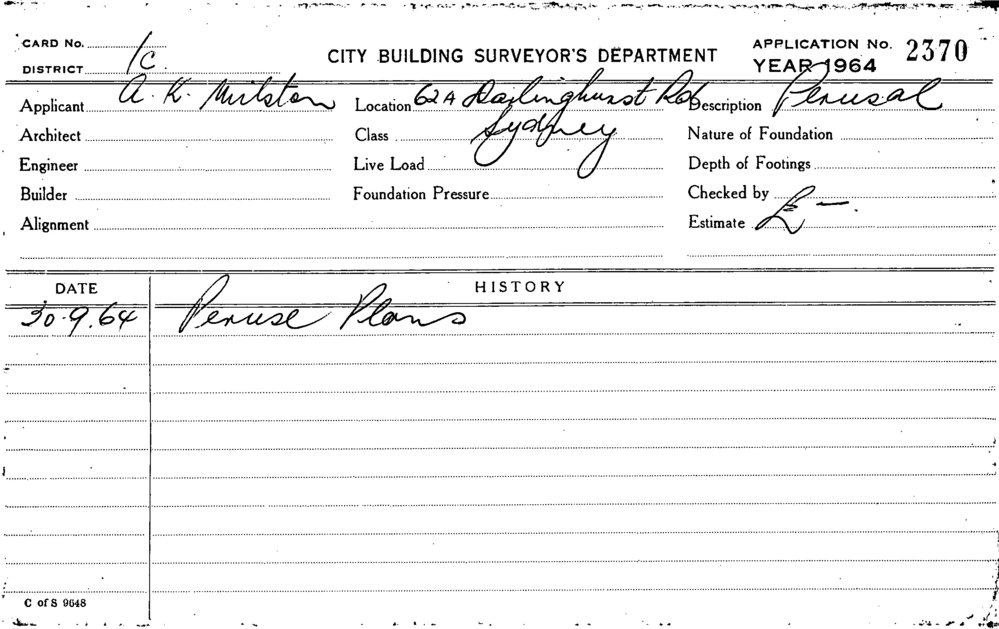 CARD No.
DISTRICT 1C
CITY BUILDING SURVEYOR'S DEPARTMENT
APPLICATION No. 2370
YEAR 1964
Applicant A. K. Milston Location 62A Darlinghurst Rd Description Perusal
Architect Class Sydney Nature of Foundation
Engineer Live Load Depth of Footings
Builder Foundation Pressure Checked by
Alignment Estimate £ —.
DATE HISTORY
30.9.64 Peruse Plans
C of S 9648